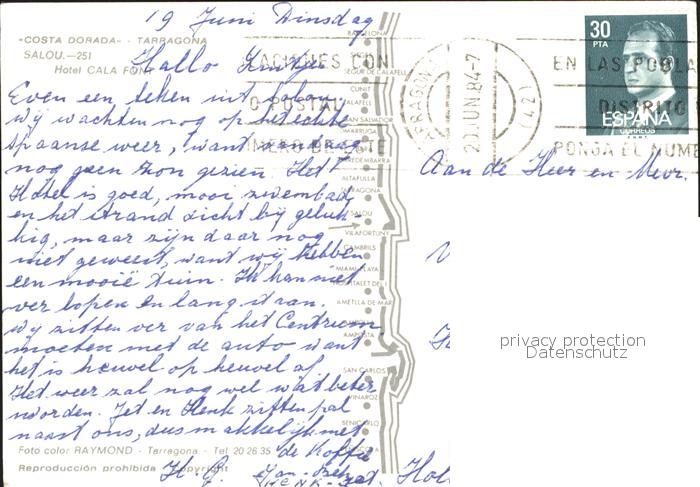 19 Juni Dinsdag
«COSTA DORADA» - TARRAGONA
SALOU.—251
Hotel CALA FONT
Hallo
Even een teken uit Salou,
wij wachten nog op het echte
Spaanse weer, want vandaag
nog geen zon gezien. Het
Hotel is goed, mooi zwembad
en het strand dicht bij geluk-
kig, maar zijn daar nog
niet geweest, want wij hebben
een mooie tuin. Ik kan niet
ver lopen en lang staan.
Wij zitten ver van het Centrum
moeten met de auto want
het is heuvel op heuvel af.
Het weer zal nog wel wat beter
worden. Jet en Henk zitten pal
naast ons, dus makkelijk met
de koffie
Foto color RAYMOND - Tarragona - Tel 20 26 35
Reproducción prohibida Copyright
HENK
Aan de Heer en Mevr.
30
PTA
ESPAÑA
CORREOS
20 JUN. 84-7
(42)
EN LAS POBLA
DISTRITO
PONGA EL NUME
CACIONES CON
O POSTAL
IMERO DE ESTE
BARCELONA
SEGUR DE CALAFELL
CUNIT
CALAFELL
SAN SALVADOR
COMARRUGA
TORREDEMBARRA
ALTAFULLA
TARRAGONA
SALOU
VILAFORTUNY
CAMBRILS
MIAMI PLAYA
HOSPITALET DEL I
AMETLLA DE MAR
AMPOSTA
SAN CARLOS
VINAROZ
BENICARLO
privacy protection
Datenschutz